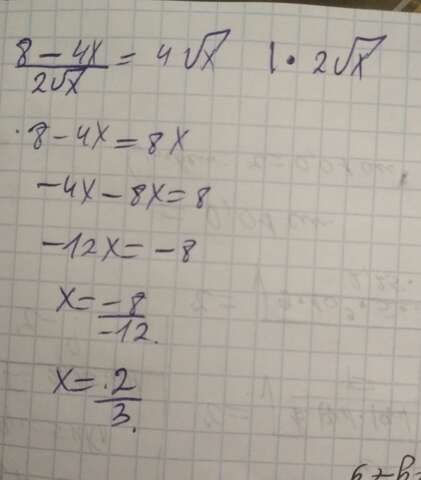 8 - 4x / 2√x = 4√x | · 2√x
8 - 4x = 8x
-4x - 8x = 8
-12x = -8
x = -8 / -12
x = 2 / 3